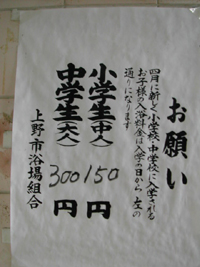 お願い
四月に新しく小学校・中学校に入学される
お子様の入浴料金は入学の日から左の
通りになります
小学生(中人) 150円
中学生(大人) 300円
上野市浴場組合